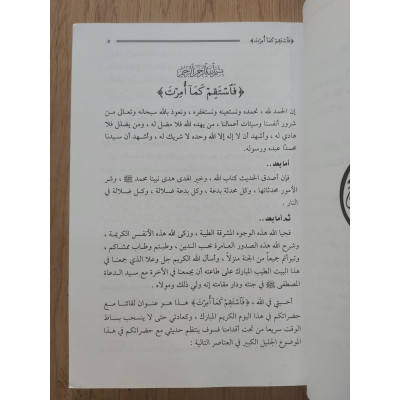 ﴿ فَاسْتَقِمْ كَمَا أُمِرْتَ ﴾
بسم الله الرحمن الرحيم
﴿ فَاسْتَقِمْ كَمَا أُمِرْتَ ﴾
إن الحمد لله ، نحمده ونستعينه ونستغفره ، ونعوذ بالله سبحانه وتعالى من
شرور أنفسنا وسيئات أعمالنا ، من يهده الله فلا مضل له ، ومن يضلل فلا
هادي له ، وأشهد أن لا إله إلا الله وحده لا شريك له ، وأشهد أن سيدنا
محمدًا عبده ورسوله.
أما بعد ..
فإن أصدق الحديث كتاب الله ، وخير الهدى هدى نبينا محمد ﷺ ، وشر
الأمور محدثاتها ، وكل محدثة بدعة ، وكل بدعة ضلالة ، وكل ضلالة في
النار .
ثم أما بعد..
فحيا الله هذه الوجوه المشرقة الطيبة ، وزكى الله هذه الأنفس الكريمة ،
وشرح الله هذه الصدور العامرة بحب الدين ، وطبتم وطاب ممشاكم ،
وتبوأتم جميعاً من الجنة منزلاً ، وأسأل الله الكريم جل وعلا الذي جمعنا في
هذا البيت الطيب المبارك على طاعته أن يجمعني في الآخرة مع سيد الدعاة
المصطفى ﷺ في جنته ودار مقامته إنه ولي ذلك ومولاه .
أحبتي في الله ، ﴿ فَاسْتَقِمْ كَمَا أُمِرْتَ ﴾ هذا هو عنوان لقائنا مع
حضراتكم في هذا اليوم الكريم المبارك ، وكعادتي حتى لا ينسحب بساط
الوقت سريعا من تحت أقدامنا فسوف ينتظم حديثي مع حضراتكم في هذا
الموضوع الجليل الكبير في العناصر التالية :